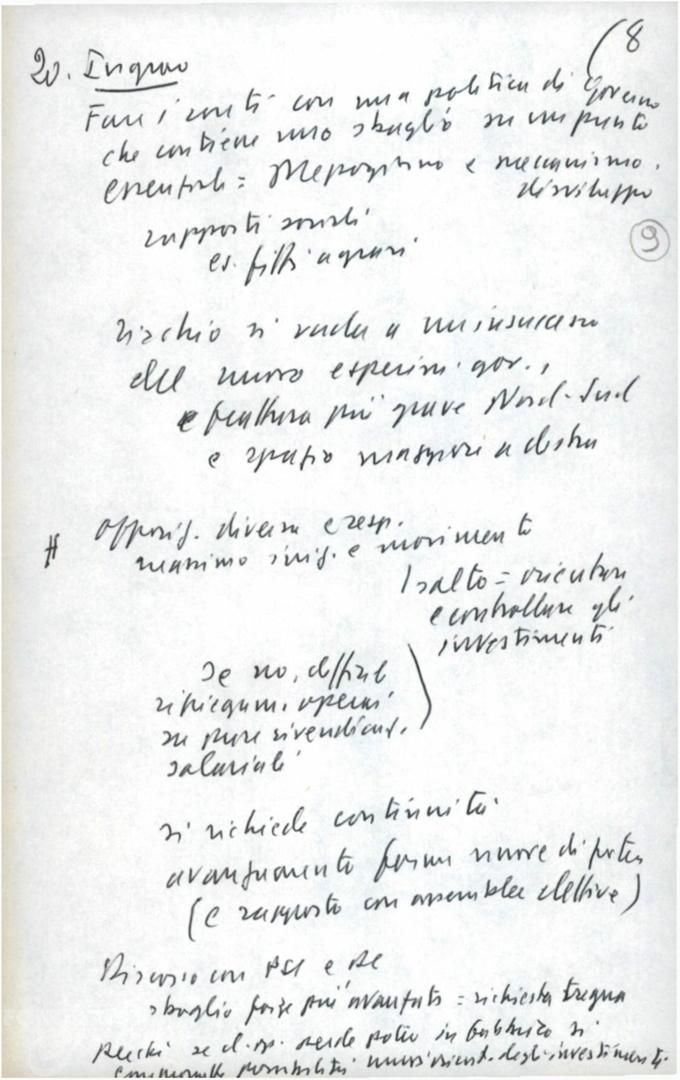 (8
20. Ingrao
Fare i conti con una politica di governo
che contiene uno sbaglio su un punto
essenziale = Mezzogiorno e meccanismo
di sviluppo
9
rapporti sociali
es. fitti agrari
rischio si vada a un insuccesso
del nuovo esperim. gov.,
e frattura più grave Nord-Sud
e spazio maggiore a destra
opposiz. diversa e resp.
massimo iniz. e movimento
salto = orientare
e controllare gli
investimenti
Se no, diffic
ripiegam. operai
su pure rivendicaz.
salariali
si richiede continuità
avanzamento forme nuove di potere
(e rapporto con assemblee elettive)
Discorso con PSI e
sbaglio forze più avanzate = richiesta tregua
Perché se cl. op. perde potere in fabbrica si
possibilità degli investimenti